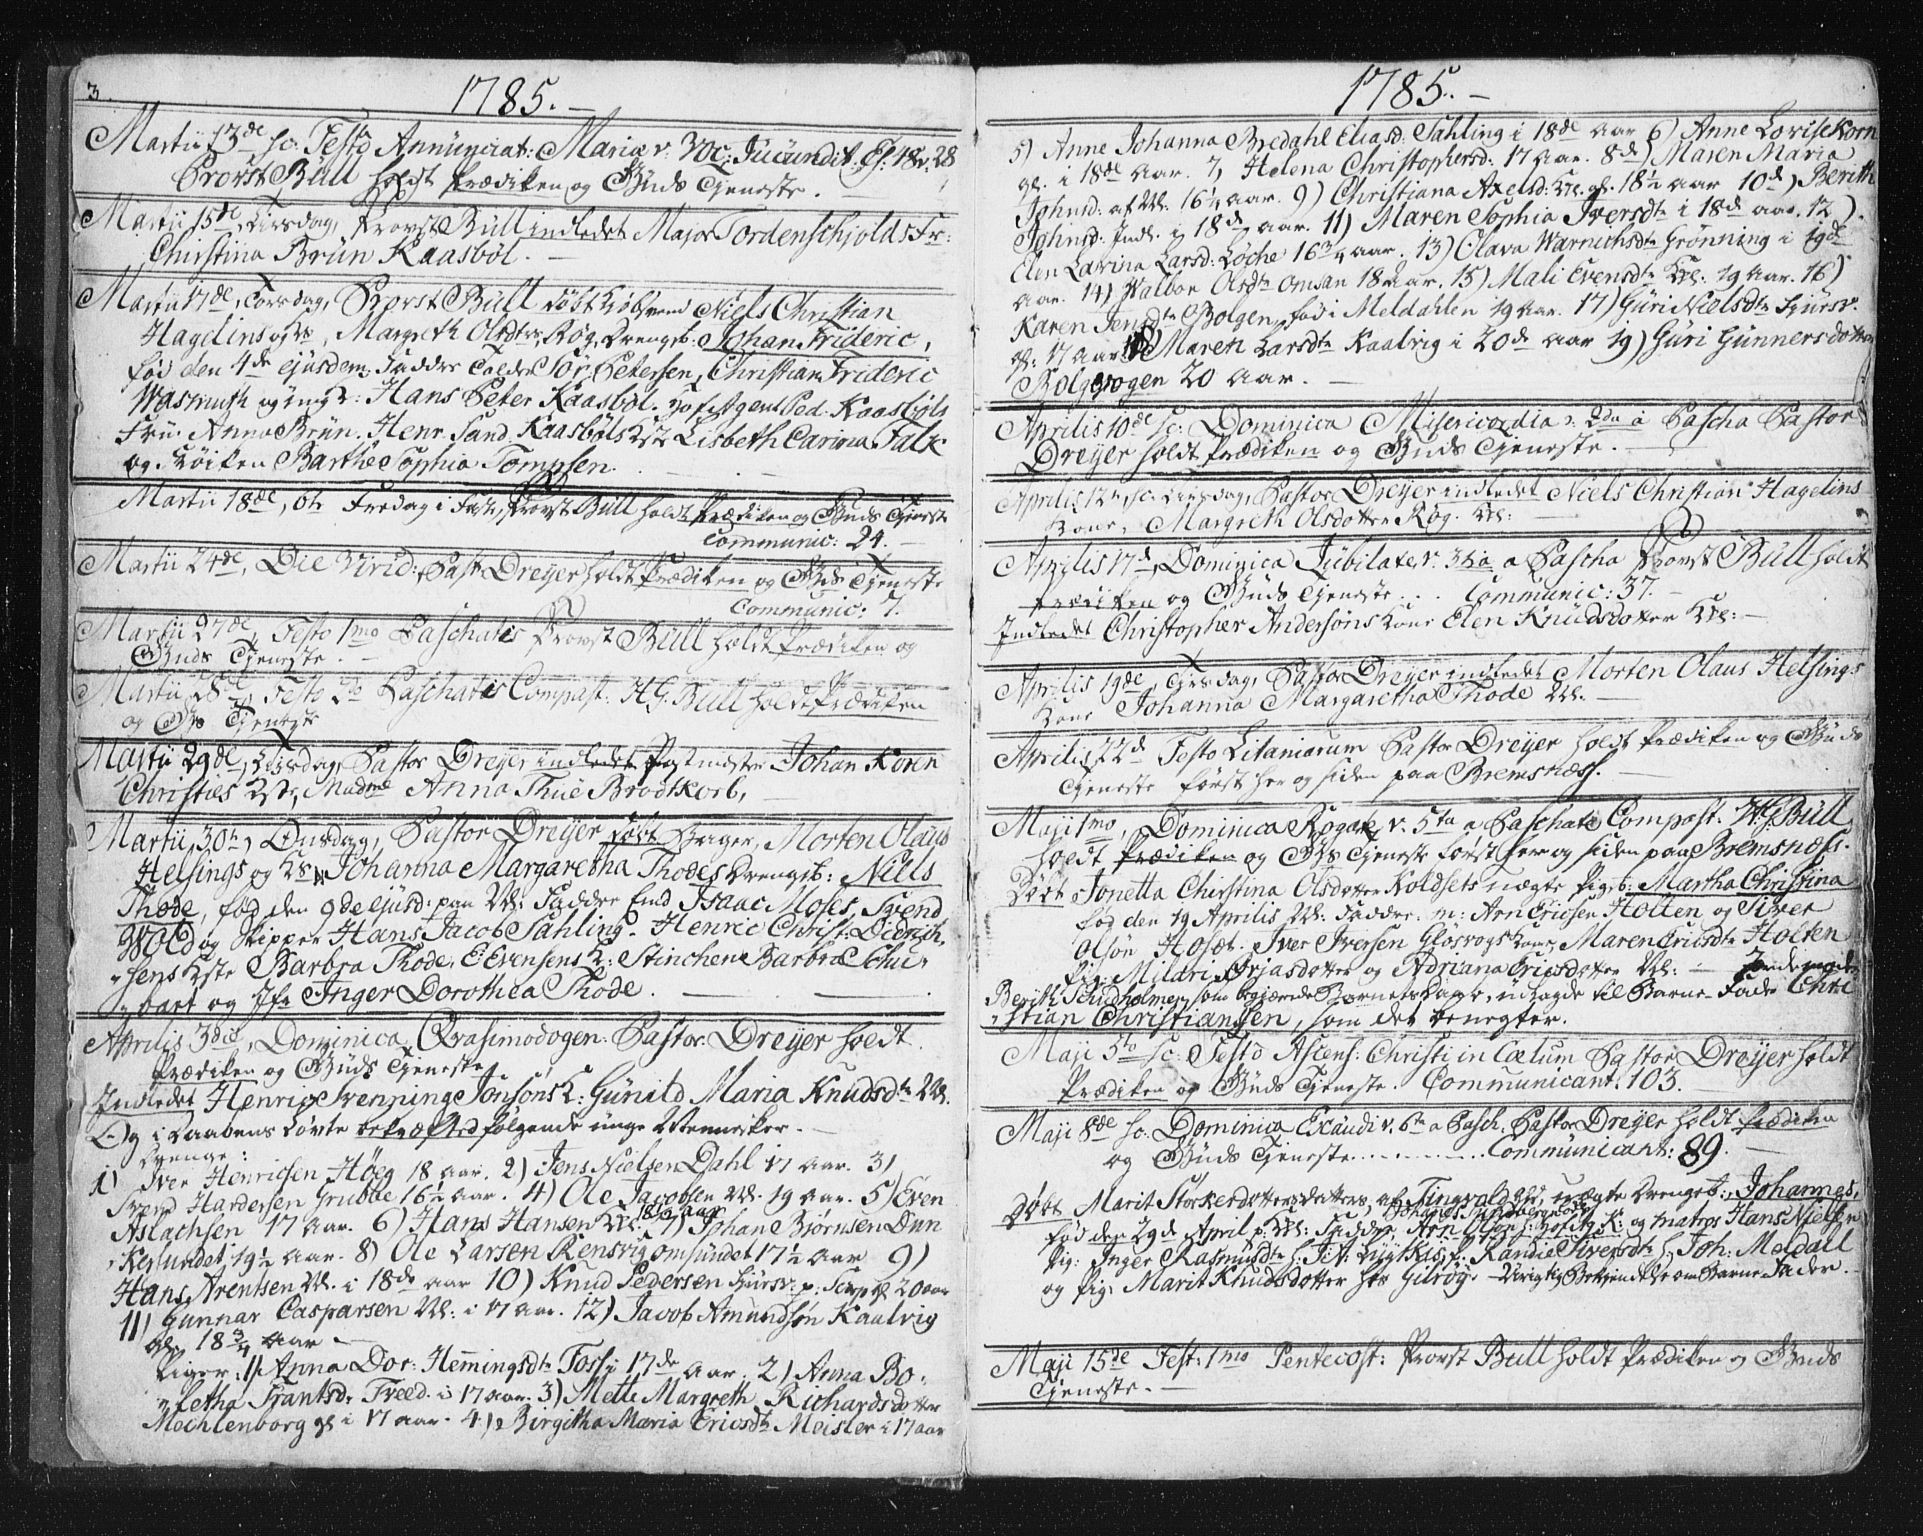 3.
1785.
Martii 13de sc: Festo Annunciat: Mariæ v:
Provst Büll holdt Prædiken og Guds Tjeneste.
Martii 15de, Tirsdag, Provst Büll indledet Major Tordenschjolds Fr:
Christina Brün Kaasbøl.
Martii 17de, Torsdag, Provst Büll døbt Niels Christian
Hagelins og Margreth Olsdtr Røg, Drengeb: Johan Frideric,
fød den 4de ejusdem, Faddre Petersen, Christian Frideric
Wasmuth og Hans Peter Kaasbøl. Ped: Kaasbøls
Frü: Anna Brün. Henr. Sand. Kaasbøls Lisbeth Carina Falk
og Barthe Sophia Tompsen.
Martii 18de, 6te Fredag i Faste, Provst Büll holdt Prædiken og Guds Tjeneste
Communic: 24.
Martii 24de, Die Virid: Past: Dreyer holdt Prædiken og Guds Tjeneste
Communic: 7.
Martii 27de, Festo 1mo Paschatis Provst Büll holdt Prædiken og
Guds Tjeneste.
Martii 28de, Festo 2do Paschatis Compast: H G: Büll holdt Prædiken
og Tjeneste
Martii 29de, Tirsdag, Pastor Dreyer indledet Postmester Johan Koren
Christies Madme Anna Thüe Brodtkorb,
Martii 30te, Onsdag, Pastor Dreyer døbt Morten Olaus
Helsings og Johanna Margaretha Thodes Drengeb: Niels
Thode, fød den 9de ejusd: paa Faddre Isaac Moses, Svend
Wold og Skipper Hans Jacob Sahling. Henric Christ: Didrich-
sens Barbra Thode, E: Evensens Stinchen Barbra Schu-
bart og Jfr Inger Dorothea Thode.
Aprilis 3die, Dominica Qvasimodogen: Pastor Dreyer holdt
Prædiken og Guds Tjeneste.
Indledet Henric Svenning Jonsøns K: Günild Maria Knudsdtr
Og i Daabens Løvte bekræfted følgende unge Mennesker.
Drenge:
1) Iver Henrichsen Höeg 18 aar. 2) Jens Nielsen Dahl 17 aar. 3)
Svend Hardersen Grubbe 16½ aar. 4) Ole Jacobsen 19 aar. 5) Even
Aslachsen 17 aar. 6) Hans Hansen 18½ aar 7) Johan Bjørnsen Dun
Kersundet, 19½ aar. 8) Ole Larsen Rensvig omsundet 17½ aar 9)
Hans Arentsen i 18de aar 10) Knud Pedersen 20 aar
11) Gunnar Casparsen i 17 aar. 12) Jacob Amundsøn Kaalvig
gl. 18¾ aar
Piger: 1) Anna Dor: Hemingsdtr Foss i 17de aar. 2) Anna Bo-
letha Frantsdr Treed. i 17 aar. 3) Mette Margreth Richardsdotter
Mechlenborg gl i 17 aar. 4) Birgitha Maria Ericsdtr Meisler i 17 aar
1785.
5) Anne Johanna Bredahl Eliasd: Sahling i 18de aar 6) Anne Lovise Korn
gl. i 18de aar. 7, Helena Christophersd: 17 aar. 8de) Maren Maria
Johnsd: 16¼ aar. 9) Christiana Axelsd: gl. 18½ aar 10de) Berith
Johnsd: i 18de aar. 11) Maren Sophia Iversdtr i 18de aar. 12).
Elen Lavina Larsd: Løche 16¾ aar. 13) Olava Warnichsdtr Grønning i 19de
aar. 14) Walbor Olsdtr Omsan 18 aar. 15) Mali Evensdtr 19 aar. 16)
Karen Jensdtr Bolgen, fød i Meldahlen 19 aar. 17) Güri Nielsdtr
gl: 17 aar 18) Maren Larsdtr Kaalvig i 20de aar 19) Güri Günnersdotter
Bolgvogen 20 aar.
Aprilis 10de sc: Dominica Misericordia v: 2da a Pascha Pastor
Dreyer holdt Prædiken og Guds Tjeneste.
Aprilis 12te, sc. Tirsdag, Pastor Dreyer indledet Niels Christian Hagelins
Kone, Margreth Olsdotter Røg.
Aprilis 17de, Dominica Jubilate v. 3tia a Pascha Provst Büll holdt
Prædiken og Guds Tjeneste... Communic: 37.
Indledet Christopher Andersøns Kone Elen Knudsdotter
Aprilis 19de, Tirsdag, Pastor Dreyer indledet Morten Olaus Helsings
Kone Johanna Margaretha Thode
Aprilis 22de Festo Litaniarum Pastor Dreyer holdt Prædiken og Guds
Tjeneste først her og siden paa Bremsness.
Maji 1mo, Dominica Rogate, v. 5ta a Paschate Compast. H G. Büll
holdt Prædiken og Tjeneste først her og siden paa Bremsness.
Døbt Jonetta Christina Olsdotter Koldsets uægte Pigeb: Martha Christina
fød den 19 Aprilis Faddre: m: Arn Ericsen Holten og Siver
Olsøn Hoset. Iver Iversen Gløsvogs Kone, Maren Ericsdtr Holten
Pig: Mildri Orjasdotter og Adriana Ericsdotter
Berith Schidholmen, som begjærede Barnets Daab, udlagde til Barne-Fader Chri-
stian Christiansen, som det benegter.
Maji 5to sc: Festo Ascens: Christi in Cœlum Pastor Dreyer holdt
Prædiken og Guds Tjeneste. Communicant. 103.
Maji 8de sc: Dominica Exaudi v. 6ta a Pasch. Pastor Dreyer holdt Prædiken
og Guds Tjeneste.......... Communicant: 89.
Døbt Marit Storkersdotters af Tingvold uægte Drengeb: Johannes,
fød den 29de April Faddre Arn Olsøn og Matros Hans Nielsen
Pig: Inger Rasmusdtr Randie Siversdtr Joh: Meldall
og Pig: Marit Knudsdotter Gilrøy. Urigtig Bekjendtelse om Barne Fader.
Maji 15de Fest: 1mo Pentecost: Provst Büll holdt Prædiken og Guds
Tjeneste.